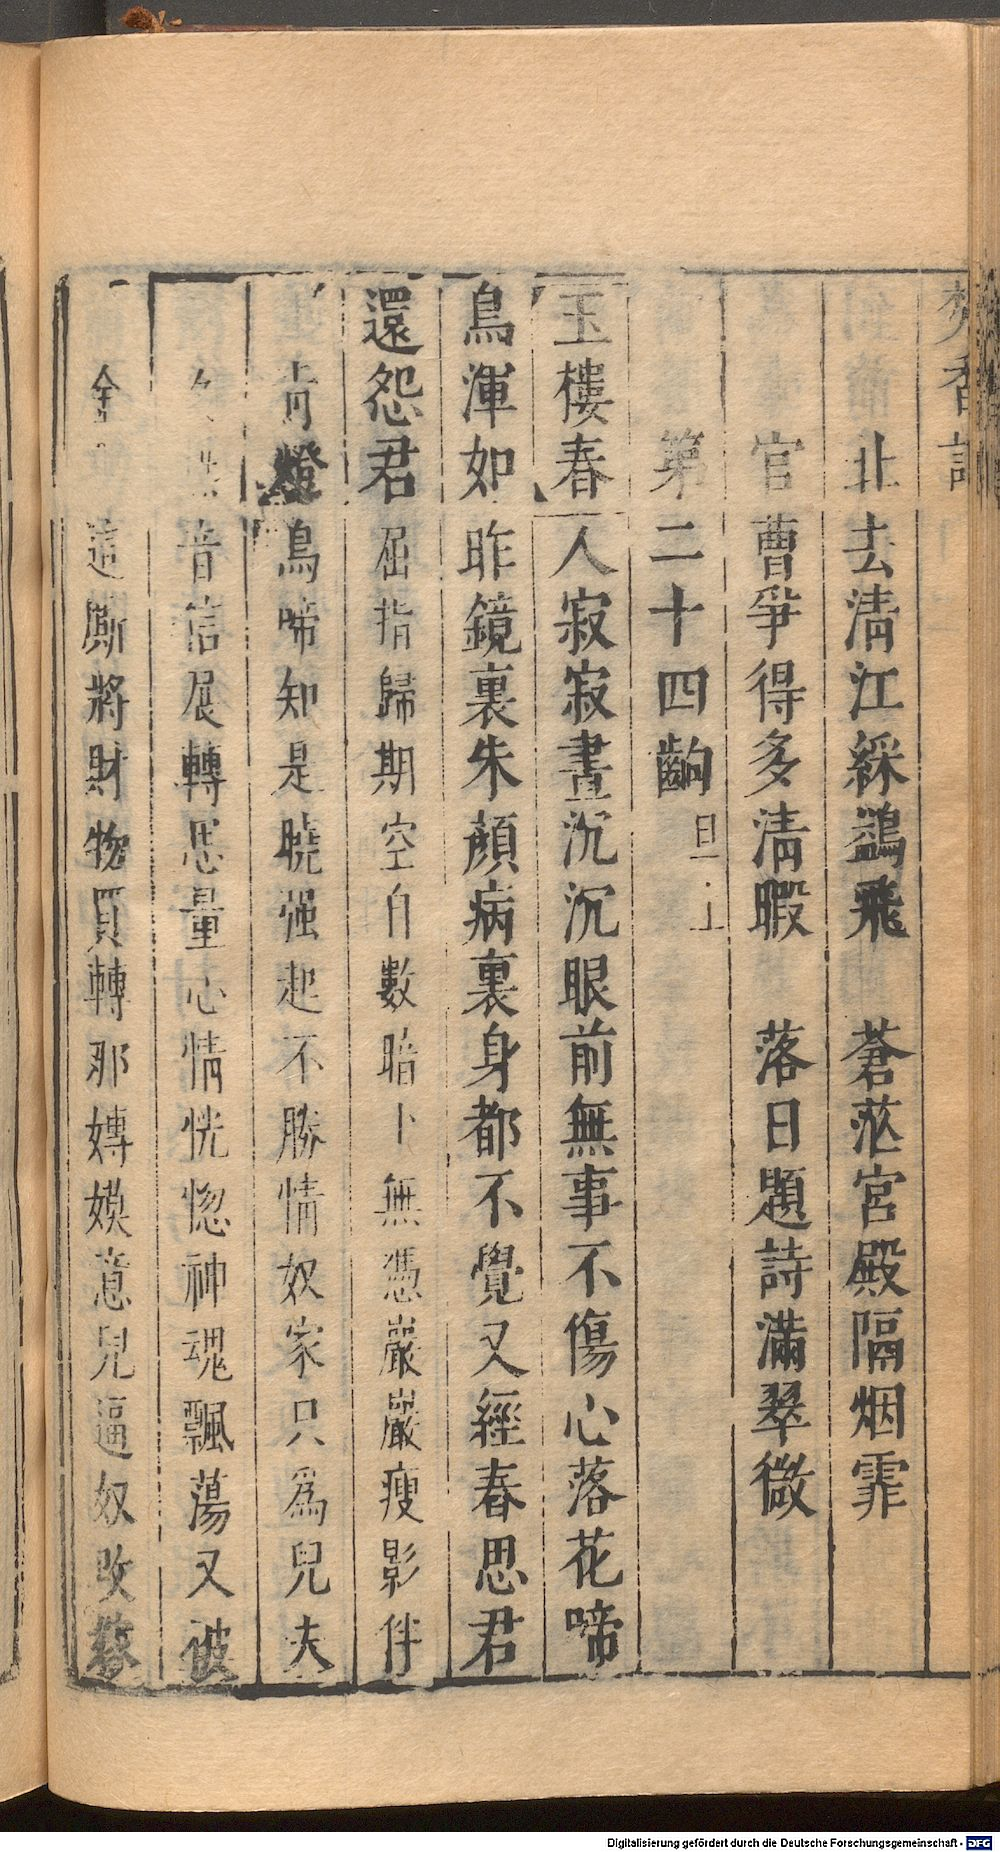 焚香記
北去淸江綵鷁飛　蒼茫宮殿隔烟霏
官曹爭得多淸暇　落日題詩滿翠微
第二十四齣旦上
玉樓春人寂寂晝沉沉眼前無事不傷心落花啼
鳥渾如昨鏡裏朱顏病裏身都不覺又經春思君
還怨君屈指歸期空自數暗卜無憑巖巖瘦影伴
靑燈鳥啼知是曉强起不勝情奴家只爲兒夫
音信展轉思量心情恍惚神魂飄蕩又彼
金這廝將財物買轉那嫥嫫意兒逼奴改嫁
Digitalisierung gefördert durch die Deutsche Forschungsgemeinschaft - DFG